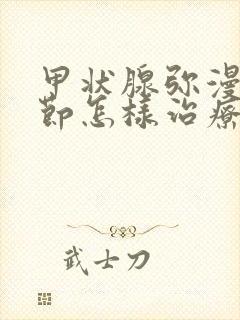 甲状腺弥漫
节怎样治疗
武士刀